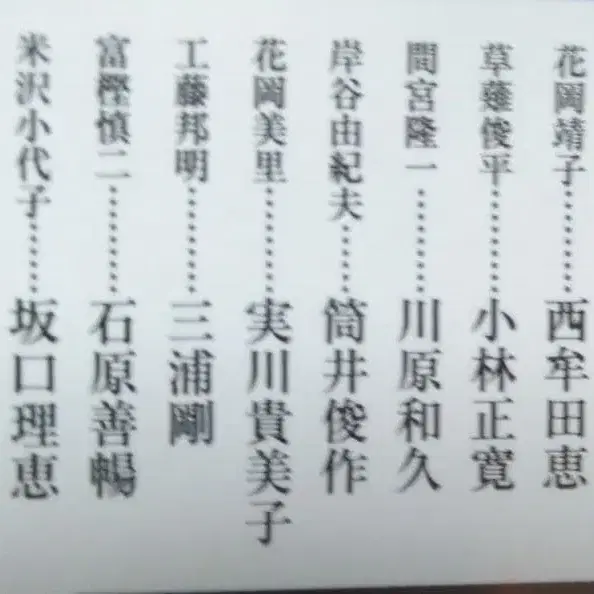 花岡靖子…………西牟田恵
草薙俊平…………小林正寛
間宮隆一…………川原和久
岸谷由紀夫………筒井俊作
花岡美里…………実川貴美子
工藤邦明…………三浦剛
富樫慎二…………石原善暢
米沢小代子………坂口理恵